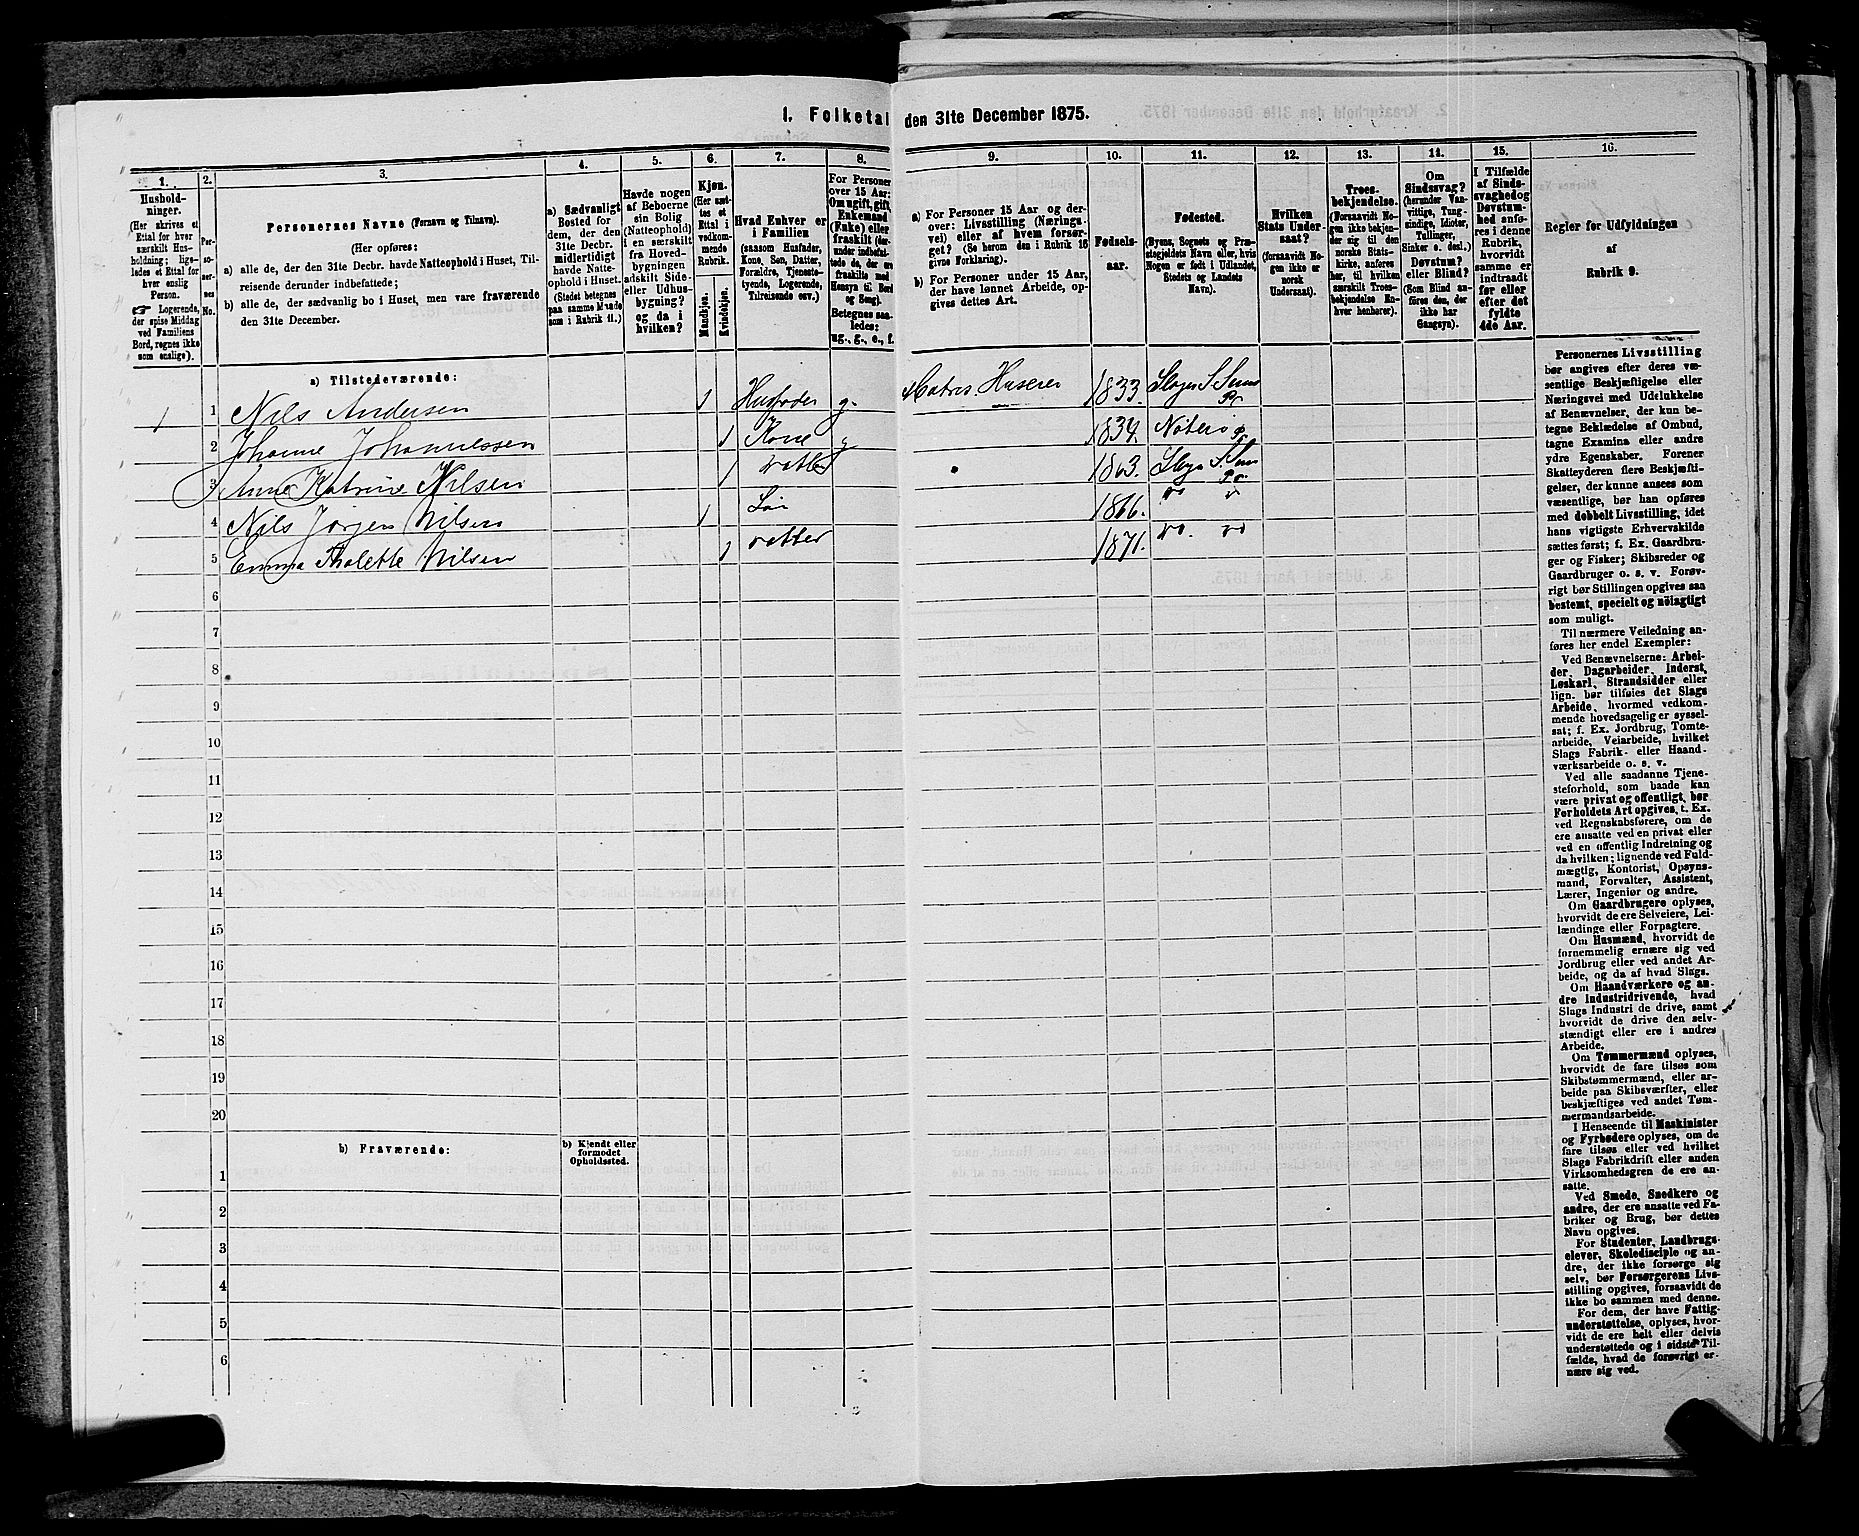 1. Folketal den 31te December 1875.
1.
Hushold-
ninger.
(Her skrives et
Ettal for hver
særskilt Hus-
holdning; lige-
ledes et Ettal for
hver enslig
Person.
☞ Logerende,
der spise Middag
ved Familiens
Bord, regnes ikke
som enslige).
2.
Per-
so-
ner-
nes
No.
3.
Personernes Navne (Fornavn og Tilnavn).
(Her opføres:
a) alle de, der den 31te Decbr. havde Natteophold i Huset, Til-
reisende derunder indbefattede;
b) alle de, der sædvanlig bo i Huset, men vare fraværende
den 31te December.
4.
a) Sædvanligt
Bosted for
dem, der den
31te Decbr.
midlertidigt
havde Natte-
ophold i Huset.
(Stedet betegnes
paa samme Maade
som i Rubrik 11.)
5.
Havde nogen
af Beboerne
sin Bolig
(Natteophold)
i en særskilt
fra Hoved-
bygningen
adskilt Side-
eller Udhus-
bygning?
og da i
hvilken?
6.
Kjøn.
(Her sæt-
tes et
Ettal i
vedkom-
mende
Rubrik.
Mandkjøn.
Kvindekjøn.
7.
Hvad Enhver er
i Familien
(saasom Husfader,
Kone, Søn, Datter,
Forældre, Tjeneste-
tyende, Logerende,
Tilreisende osv.)
8.
For Personer
over 15 Aar:
Om ugift, gift,
Enkemand
(Enke) eller
fraskilt (der-
under indbefat-
tede de, der ere
fraskilte med
Hensyn til Bord
og Seng).
Betegnes saa-
ledes:
ug., g., e., f.
9.
a) For Personer 15 Aar og der-
over: Livsstilling (Nærings-
vei) eller af hvem forsør-
get? (Se herom den i Rubrik 16
givne Forklaring).
b) For Personer under 15 Aar,
der have lønnet Arbeide, op-
gives dettes Art.
10.
Fødsels-
aar.
11.
Fødested.
(Byens, Sognets og Præ-
stegjeldets Navn eller, hvis
Nogen er født i Udlandet,
Stedets og Landets
Navn).
12.
Hvilken
Stats Under-
saat?
(forsaavidt No-
gen ikke er
norsk
Undersaat).
13.
Troes-
bekjendelse.
(Forsaavidt No-
gen ikke bekjen-
der sig til den
norske Stats-
kirke, anføres
her, til hvilken
særskilt Troes-
bekjendelse En-
hver henhører).
14.
Om
Sindssvag?
(herunder Van-
vittige, Tung-
sindige, Idioter,
Tullinger,
Sinker o. desl.)
Døvstum?
eller Blind?
(Som Blind an-
føres den, der
ikke har
Gangsyn).
15.
I Tilfælde
af Sinds-
svaghed og
Døvstum-
hed anfø-
res i denne
Rubrik,
hvorvidt
samme er
Indtraadt
før eller
efter det
fyldte
4de Aar.
16.
Regler for Udfyldningen
af
Rubrik 9.
a) Tilstedeværende:
1 1 Nils Andersen 1 Husfader g. Matros. Huseier 1833. Slagn S Sems Pr
2 Johanne Johannessen 1 Kone g 1834. Nøterø Pr
3 Anne Katrine Nilsen 1 Datter 1863. Slagn S Sems Pr
4 Nils Jørgen Nilsen 1 Søn 1866.
5 Emma Thalette Nilsen 1 Datter 1871.
6
7
8
9
10
11
12
13
14
15
16
17
18
19
20
b) Fraværende:
b) Kjendt eller
formodet
Opholdssted.
1
2
3
4
5
6
Personernes Livsstilling
bør angives efter deres væ-
sentlige Beskjæftigelse eller
Næringsvei med Udelukkelse
af Benævnelser, der kun be-
tegne Beklædelse af Ombud,
tagne Examina eller andre
ydre Egenskaber. Forener
Skatteyderen flere Beskjæfti-
gelser, der kunne ansees som
væsentlige, bør han opføres
med dobbelt Livsstilling, idet
hans vigtigste Erhvervskilde
sættes først; f. Ex. Gaardbru-
ger og Fisker; Skibsreder og
Gaardbruger o. s. v. Forøv-
rigt bør Stillingen opgives saa
bestemt, specielt og nøiagtigt
som muligt.
Til nærmere Veiledning an-
føres her endel Exempler:
Ved Benævnelserne: Arbei-
der, Dagarbeider, Inderst,
Løskarl, Strandsidder eller
lign. bør tilføies det Slags
Arbeide, hvormed vedkom-
mende hovedsagelig er syssel-
sat; f. Ex. Jordbrug, Tomte-
arbeide, Veiarbeide, hvilket
Slags Fabrik- eller Haand-
værksarbeide o. s. v.
Ved alle saadanne Tjene-
steforhold, som baade kan
være privat og offentligt, bør
Forholdets Art opgives, t. Ex.
ved Regnskabsførere, om de
ere ansatte ved en privat eller
ved en offentlig Indretning og
da hvilken; lignende ved Fuld-
mægtig, Kontorist, Opsyns-
mand, Forvalter, Assistent,
Lærer, Ingeniør og andre.
Om Gaardbrugere oplyses,
hvorvidt de ere Selveiere, Lei-
lændinge eller Forpagtere.
Om Husmænd, hvorvidt de
fornemmelig ernære sig ved
Jordbrug eller ved andet Ar-
beide, og da af hvad Slags.
Om Haandværkere og an-
dre Industridrivende, hvad
Slags Industri de drive, samt
hvorvidt de drive den selv-
stændigt eller ere i andres
Arbeide.
Om Tømmermænd oplyses,
hvorvidt de fare tilsøs som
Skibstømmermænd, eller ar-
beide paa Skibsværfter, eller
beskjæftiges ved andet Tøm-
mermandsarbeide.
I Henseende til Maskinister
og Fyrbødere oplyses, om de
fare tilsøs eller ved hvilket
Slags Fabrikdrift eller anden
Virksomhedsgren de ere an-
satte.
Ved Smede, Snedkere og
andre, der ere ansatte ved Fa-
briker og Brug, bør dettes
Navn opgives.
For Studenter, Landbrugs-
elever, Skoledisciple og an-
dre, der ikke forsørge sig
selv, bør Forsørgerens Livs-
stilling opgives, forsaavidt de
ikke bo sammen med denne.
For dem, der have Fattig-
understøttelse, oplyses, hvor-
vidt de ere helt eller delvis
understøttede og i sidste Til-
fælde, hvad de forøvrigt er-
nære sig ved.